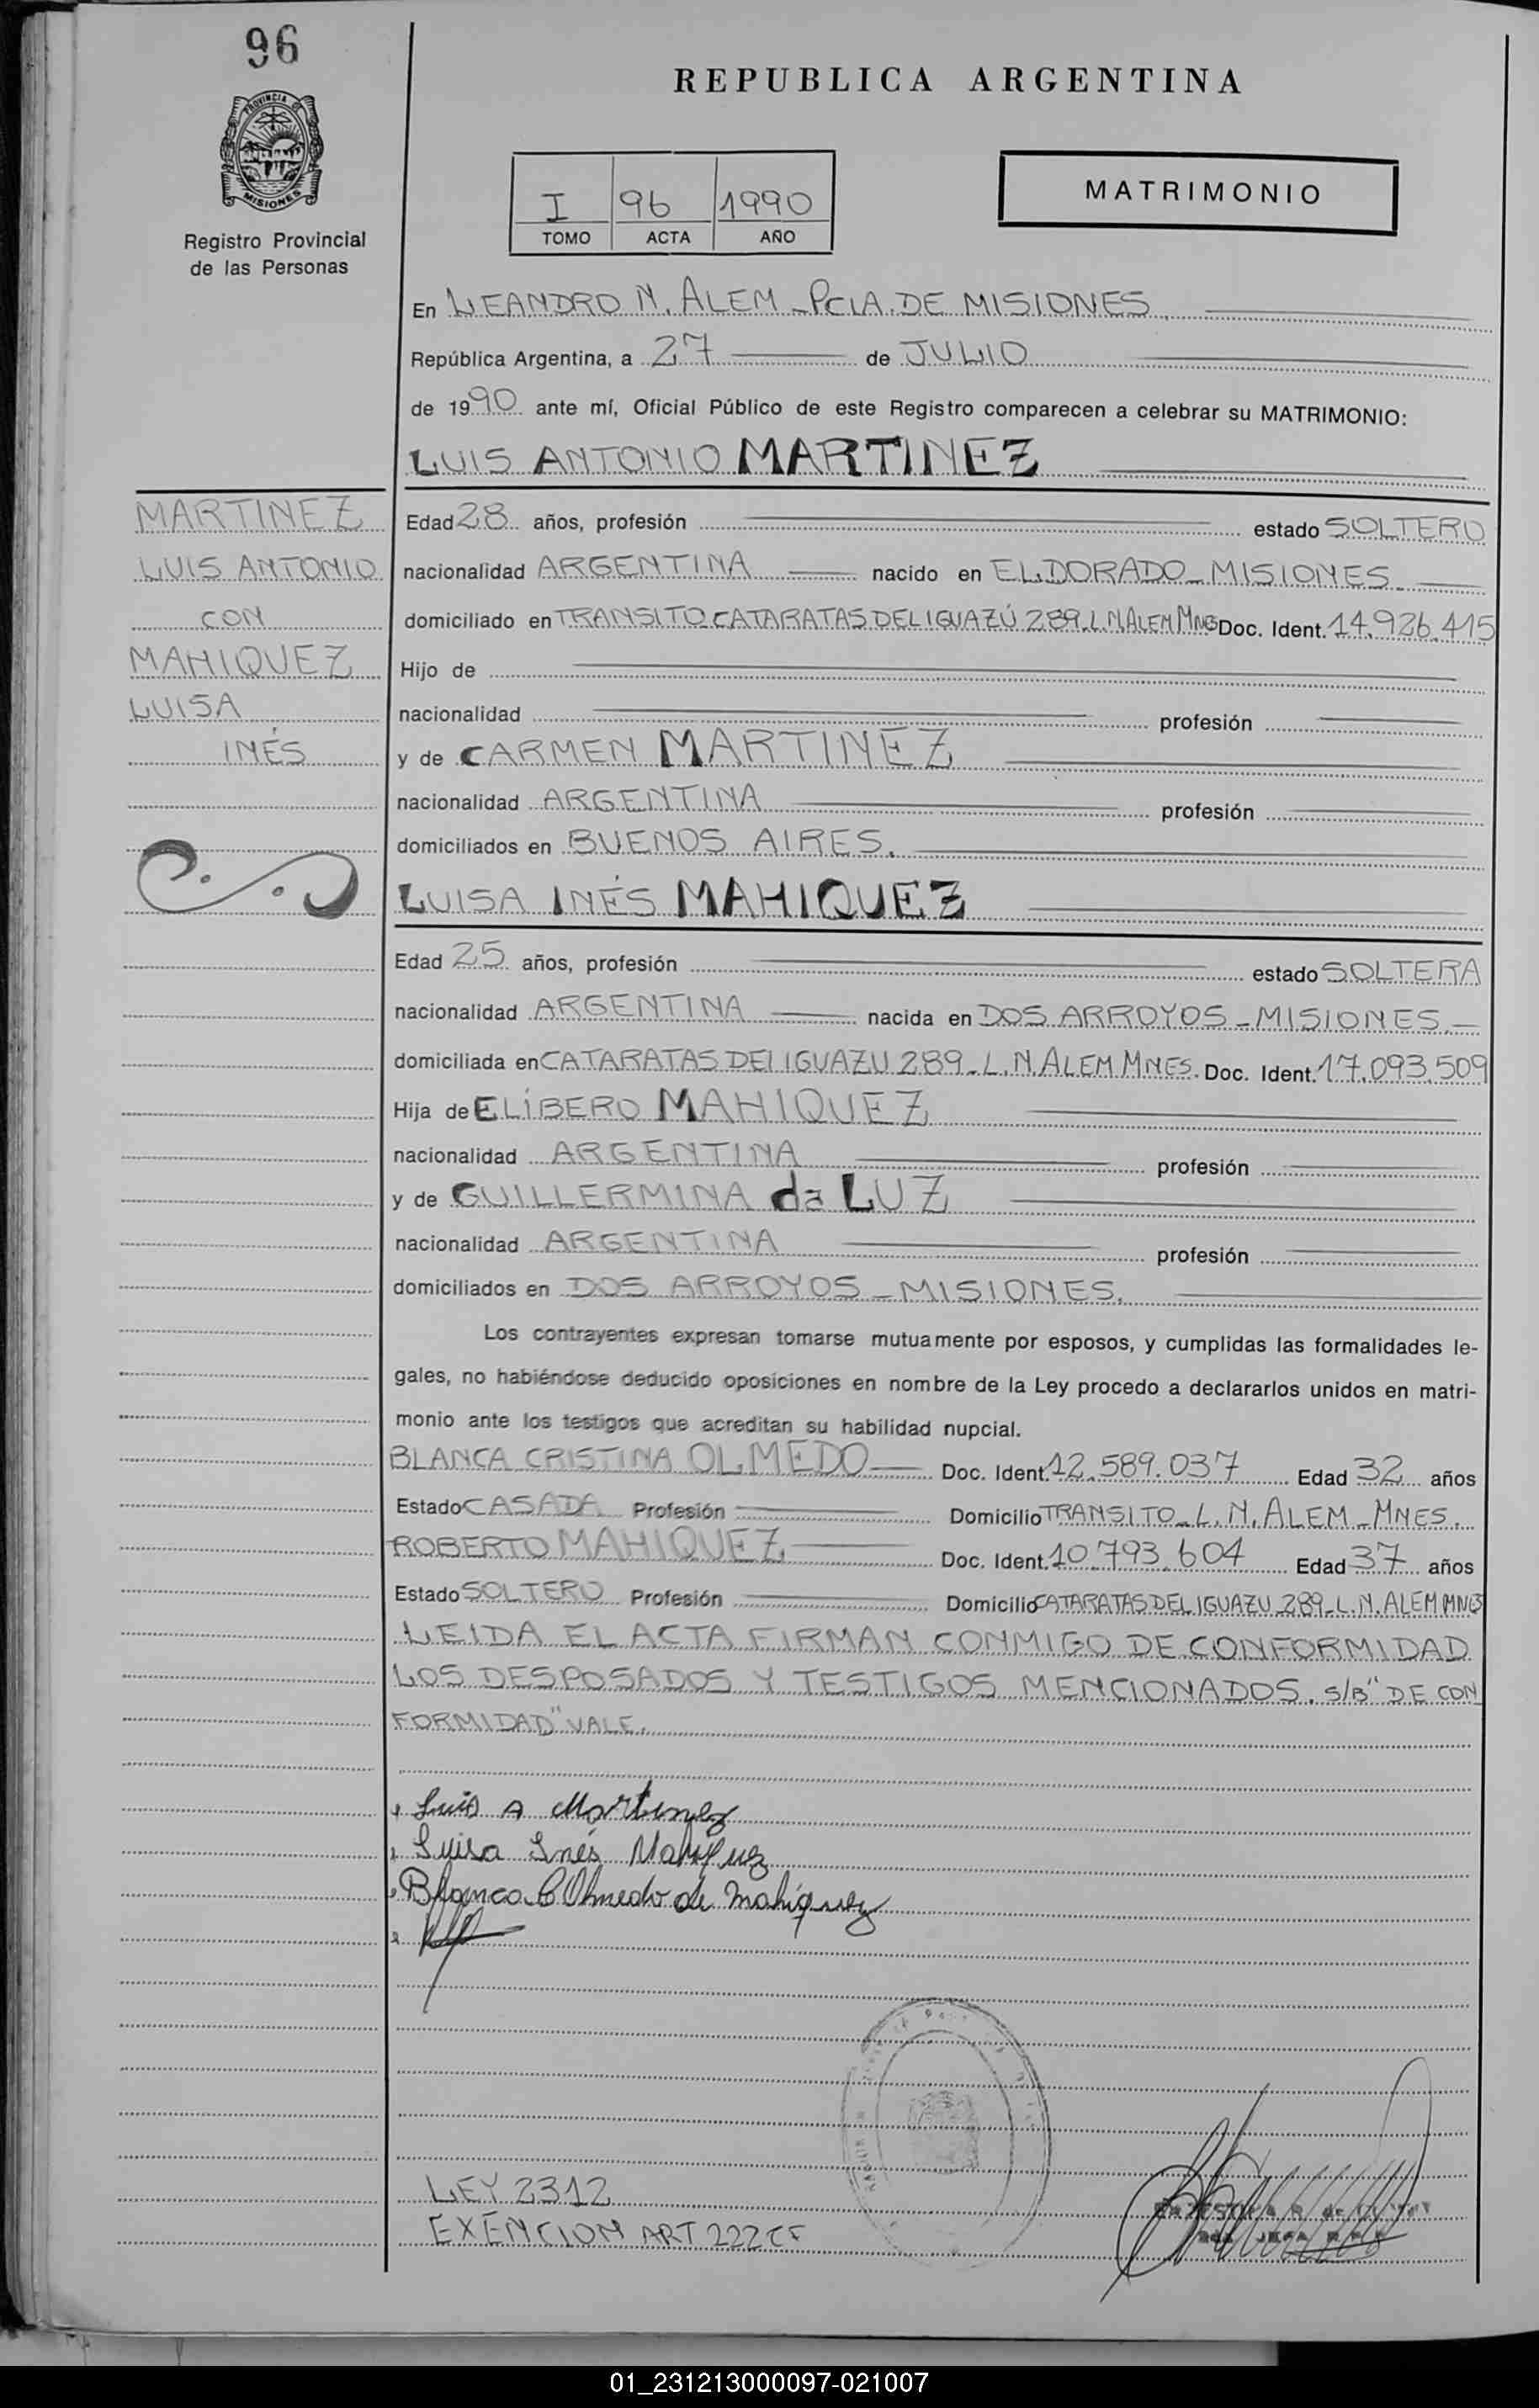 96
REPUBLICA ARGENTINA
PROVINCIA DE
MISIONES
Registro Provincial
de las Personas
I 96 1990
TOMO ACTA AÑO
MATRIMONIO
En LEANDRO N. ALEM - PCIA. DE MISIONES
República Argentina, a 27 de JULIO
de 1990 ante mí, Oficial Público de este Registro comparecen a celebrar su MATRIMONIO:
LUIS ANTONIO MARTINEZ
MARTINEZ
LUIS ANTONIO
CON
MAHIQUEZ
LUISA
INÉS
Edad 28 años, profesión estado SOLTERO
nacionalidad ARGENTINA nacido en ELDORADO - MISIONES
domiciliado en TRANSITO CATARATAS DEL IGUAZÚ 289 - L.N.ALEM MNES Doc. Ident. 14.926.415
Hijo de
nacionalidad profesión
y de CARMEN MARTINEZ
nacionalidad ARGENTINA profesión
domiciliados en BUENOS AIRES.
LUISA INÉS MAHIQUEZ
Edad 25 años, profesión estado SOLTERA
nacionalidad ARGENTINA nacida en DOS ARROYOS - MISIONES -
domiciliada en CATARATAS DEL IGUAZU 289 - L.N. ALEM MNES. Doc. Ident. 17.093.509
Hija de ELÍBERO MAHIQUEZ
nacionalidad ARGENTINA profesión
y de GUILLERMINA da LUZ
nacionalidad ARGENTINA profesión
domiciliados en DOS ARROYOS - MISIONES.
Los contrayentes expresan tomarse mutuamente por esposos, y cumplidas las formalidades le-
gales, no habiéndose deducido oposiciones en nombre de la Ley procedo a declararlos unidos en matri-
monio ante los testigos que acreditan su habilidad nupcial.
BLANCA CRISTINA OLMEDO Doc. Ident. 12.589.037 Edad 32 años
Estado CASADA Profesión Domicilio TRANSITO - L.N. ALEM - MNES.
ROBERTO MAHIQUEZ Doc. Ident. 10.793.604 Edad 37 años
Estado SOLTERO Profesión Domicilio CATARATAS DEL IGUAZU 289 - L.N. ALEM MNES
LEIDA EL ACTA FIRMAN CONMIGO DE CONFORMIDAD
LOS DESPOSADOS Y TESTIGOS MENCIONADOS. S/B" DE CON
FORMIDAD" VALE.
Luis A Martinez
Luisa Inés Mahiquez
Blanca C Olmedo de Mahiquez
LEY 2312
EXENCION ART 222 CF
01_231213000097-021007